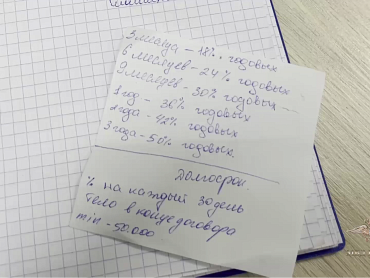 3 месяца - 18% годовых
6 месяцев - 24% годовых
9 месяцев - 30% годовых
1 год - 36% годовых
2 года - 42% годовых
3 года - 50% годовых.
Долгосрок
% на каждый 30 день
Тело в конце договора
min - 50.000